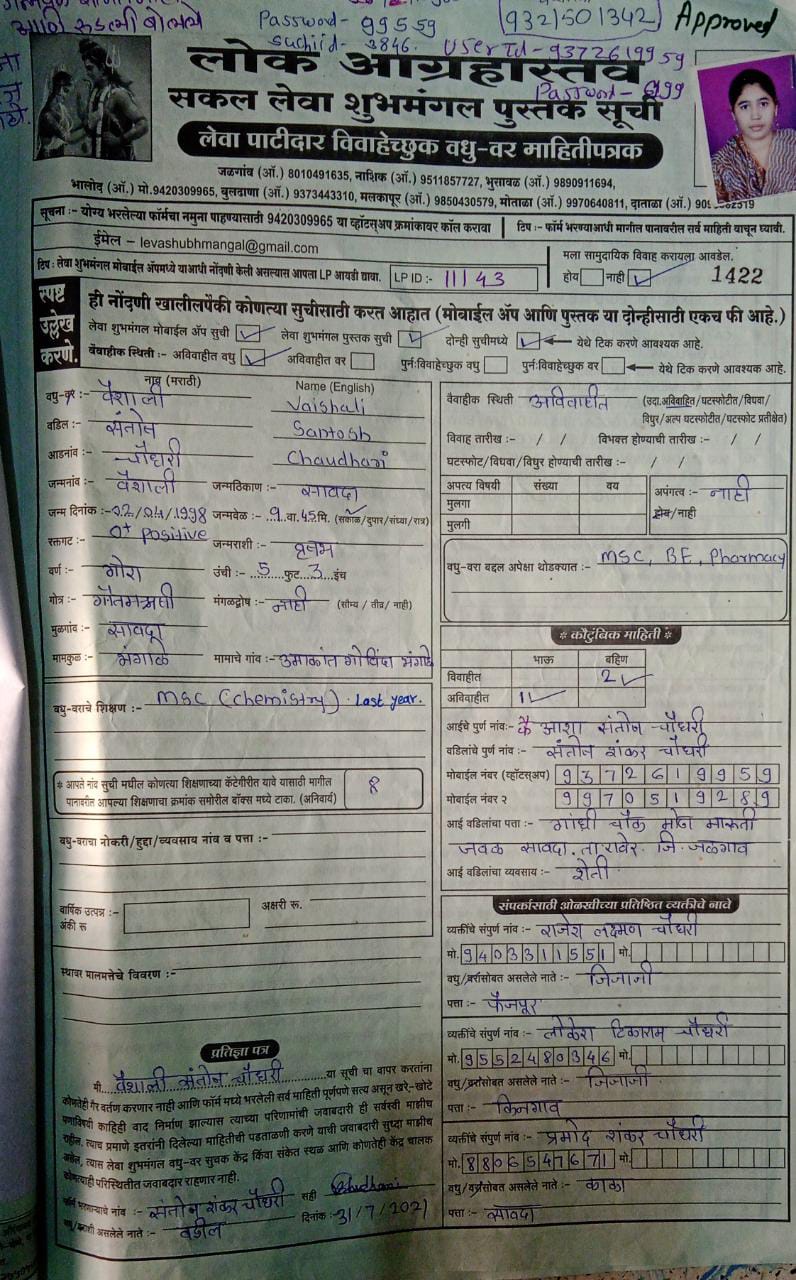 आणि रुडली बोलले
Password- 99559
9321501342
Approved
suchiid- 3846.
UserId- 9372619959
Password- 6999
लोक आग्रहास्तव
सकल लेवा शुभमंगल पुस्तक सूची
लेवा पाटीदार विवाहेच्छुक वधु-वर माहितीपत्रक
जळगांव (ऑ.) 8010491635, नाशिक (ऑ.) 9511857727, भुसावळ (ऑ.) 9890911694,
भालोद (ऑ.) मो.9420309965, बुलढाणा (ऑ.) 9373443310, मलकापूर (ऑ.) 9850430579, मोताळा (ऑ.) 9970640811, दाताळा (ऑ.)
सूचना :- योग्य भरलेल्या फॉर्मचा नमुना पाहण्यासाठी 9420309965 या व्हॉटस्अप क्रमांकावर कॉल करावा
टिप :- फॉर्म भरण्याआधी मागील पानावरील सर्व माहिती वाचून घ्यावी.
ईमेल - levashubhmangal@gmail.com
मला सामुदायिक विवाह करायला आवडेल.
टिप : लेवा शुभमंगल मोबाईल ॲपमध्ये याआधी नोंदणी केली असल्यास आपला LP आयडी द्यावा.
LP ID :- 11143
होय नाही ✓
1422
स्पष्ट
उल्लेख
करणे.
ही नोंदणी खालीलपैकी कोणत्या सुचीसाठी करत आहात (मोबाईल ॲप आणि पुस्तक या दोन्हीसाठी एकच फी आहे.)
लेवा शुभमंगल मोबाईल ॲप सुची ✓ लेवा शुभमंगल पुस्तक सुची ✓ दोन्ही सुचीमध्ये ✓ येथे टिक करणे आवश्यक आहे.
वैवाहीक स्थिती :- अविवाहीत वधु ✓ अविवाहीत वर पुर्नःविवाहेच्छुक वधु पुर्नःविवाहेच्छुक वर येथे टिक करणे आवश्यक आहे.
नाव (मराठी) Name (English)
वधु-वर :- वैशाली Vaishali
वडिल :- संतोष Santosh
आडनांव :- चौधरी Chaudhari
जन्मनांव :- वैशाली जन्मठिकाण :- सावदा
जन्म दिनांक :- 22/04/1998 जन्मवेळ :- 9 वा.45 मि. (सकाळ/दुपार/संध्या/रात्र)
रक्तगट :- o+ positive जन्मराशी :- वृषभ
वर्ण :- गोरा उंची :- 5 फुट 3 इंच
गोत्र :- गौतमऋषी मंगळदोष :- नाही (सौम्य / तीव्र / नाही)
मुळगांव :- सावदा
मामकुळ :- भंगाळे मामाचे गांव :- उमाकांत गोविंदा भंगाळे
वधु-वराचे शिक्षण :- MSC (chemistry). Last year.
* आपले नांव सुची मधील कोणत्या शिक्षणाच्या कॅटेगीरीत यावे यासाठी मागील
पानावरील आपल्या शिक्षणाचा क्रमांक समोरील बॉक्स मध्ये टाका. (अनिवार्य)
8
वधु-वराचा नोकरी/हुद्दा/व्यवसाय नांव व पत्ता :-
वार्षिक उत्पन्न :-
अंकी रू
अक्षरी रू.
स्थावर मालमत्तेचे विवरण :-
प्रतिज्ञा पत्र
मी वैशाली संतोष चौधरी या सूची चा वापर करतांना
कोणतेही गैर वर्तण करणार नाही आणि फॉर्म मध्ये भरलेली सर्व माहिती पूर्णपणे सत्य असून खरे-खोटे
पणाविषयी काहिही वाद निर्माण झाल्यास त्याच्या परिणामांची जवाबदारी ही सर्वस्वी माझीच
राहील. त्याच प्रमाणे इतरांनी दिलेल्या माहितीची पडताळणी करणे याची जवाबदारी सुध्दा माझीच
असेल, त्यास लेवा शुभमंगल वधु-वर सुचक केंद्र किंवा संकेत स्थळ आणि कोणतेही केंद्र चालक
कोणत्याही परिस्थितीत जवाबदार राहणार नाही.
फॉर्म भरणाऱ्याचे नांव :- संतोष शंकर चौधरी सही
वधु/वराशी असलेले नाते :- वडील दिनांक :- 31/7/2021
वैवाहीक स्थिती अविवाहीत (उदा.अविवाहित/घटस्फोटीत/विधवा/
विधुर/अल्प घटस्फोटीत/घटस्फोट प्रतीक्षेत)
विवाह तारीख :- / / विभक्त होण्याची तारीख :- / /
घटस्फोट/विधवा/विधुर होण्याची तारीख :- / /
अपत्य विषयी संख्या वय
मुलगा
मुलगी
अपंगत्व :- नाही
होय/नाही
वधु-वरा बद्दल अपेक्षा थोडक्यात :- MSC, BE, Pharmacy
* कौटुंबिक माहिती *
भाऊ बहिण
विवाहीत 2 ✓
अविवाहीत 1 ✓
आईचे पुर्ण नांवः- आशा संतोष चौधरी
वडिलांचे पुर्ण नांव :- संतोष शंकर चौधरी
मोबाईल नंबर (व्हॉटस्अप) 9372619959
मोबाईल नंबर २ 9970519289
आई वडिलांचा पत्ता :- गांधी चौक मोठा मारूती
जवळ सावदा. ता रावेर. जि. जळगाव
आई वडिलांचा व्यवसाय :- शेती
संपर्कासाठी ओळखीच्या प्रतिष्ठित व्यक्तीचे नावे
व्यक्तींचे संपुर्ण नांव :- राजेश लक्ष्मण चौधरी
मो. 9403311551 मो.
वधु/वरासोबत असलेले नाते :- जिजाजी
पत्ता :- फैजपूर
व्यक्तींचे संपुर्ण नांव :- लोकेश टिकाराम चौधरी
मो. 9552480346 मो.
वधु/वरासोबत असलेले नाते :- जिजाजी
पत्ता :- किनगाव
व्यक्तींचे संपुर्ण नांव :- प्रमोद शंकर चौधरी
मो. 8806547671 मो.
वधु/वरासोबत असलेले नाते :- काका
पत्ता :- सावदा